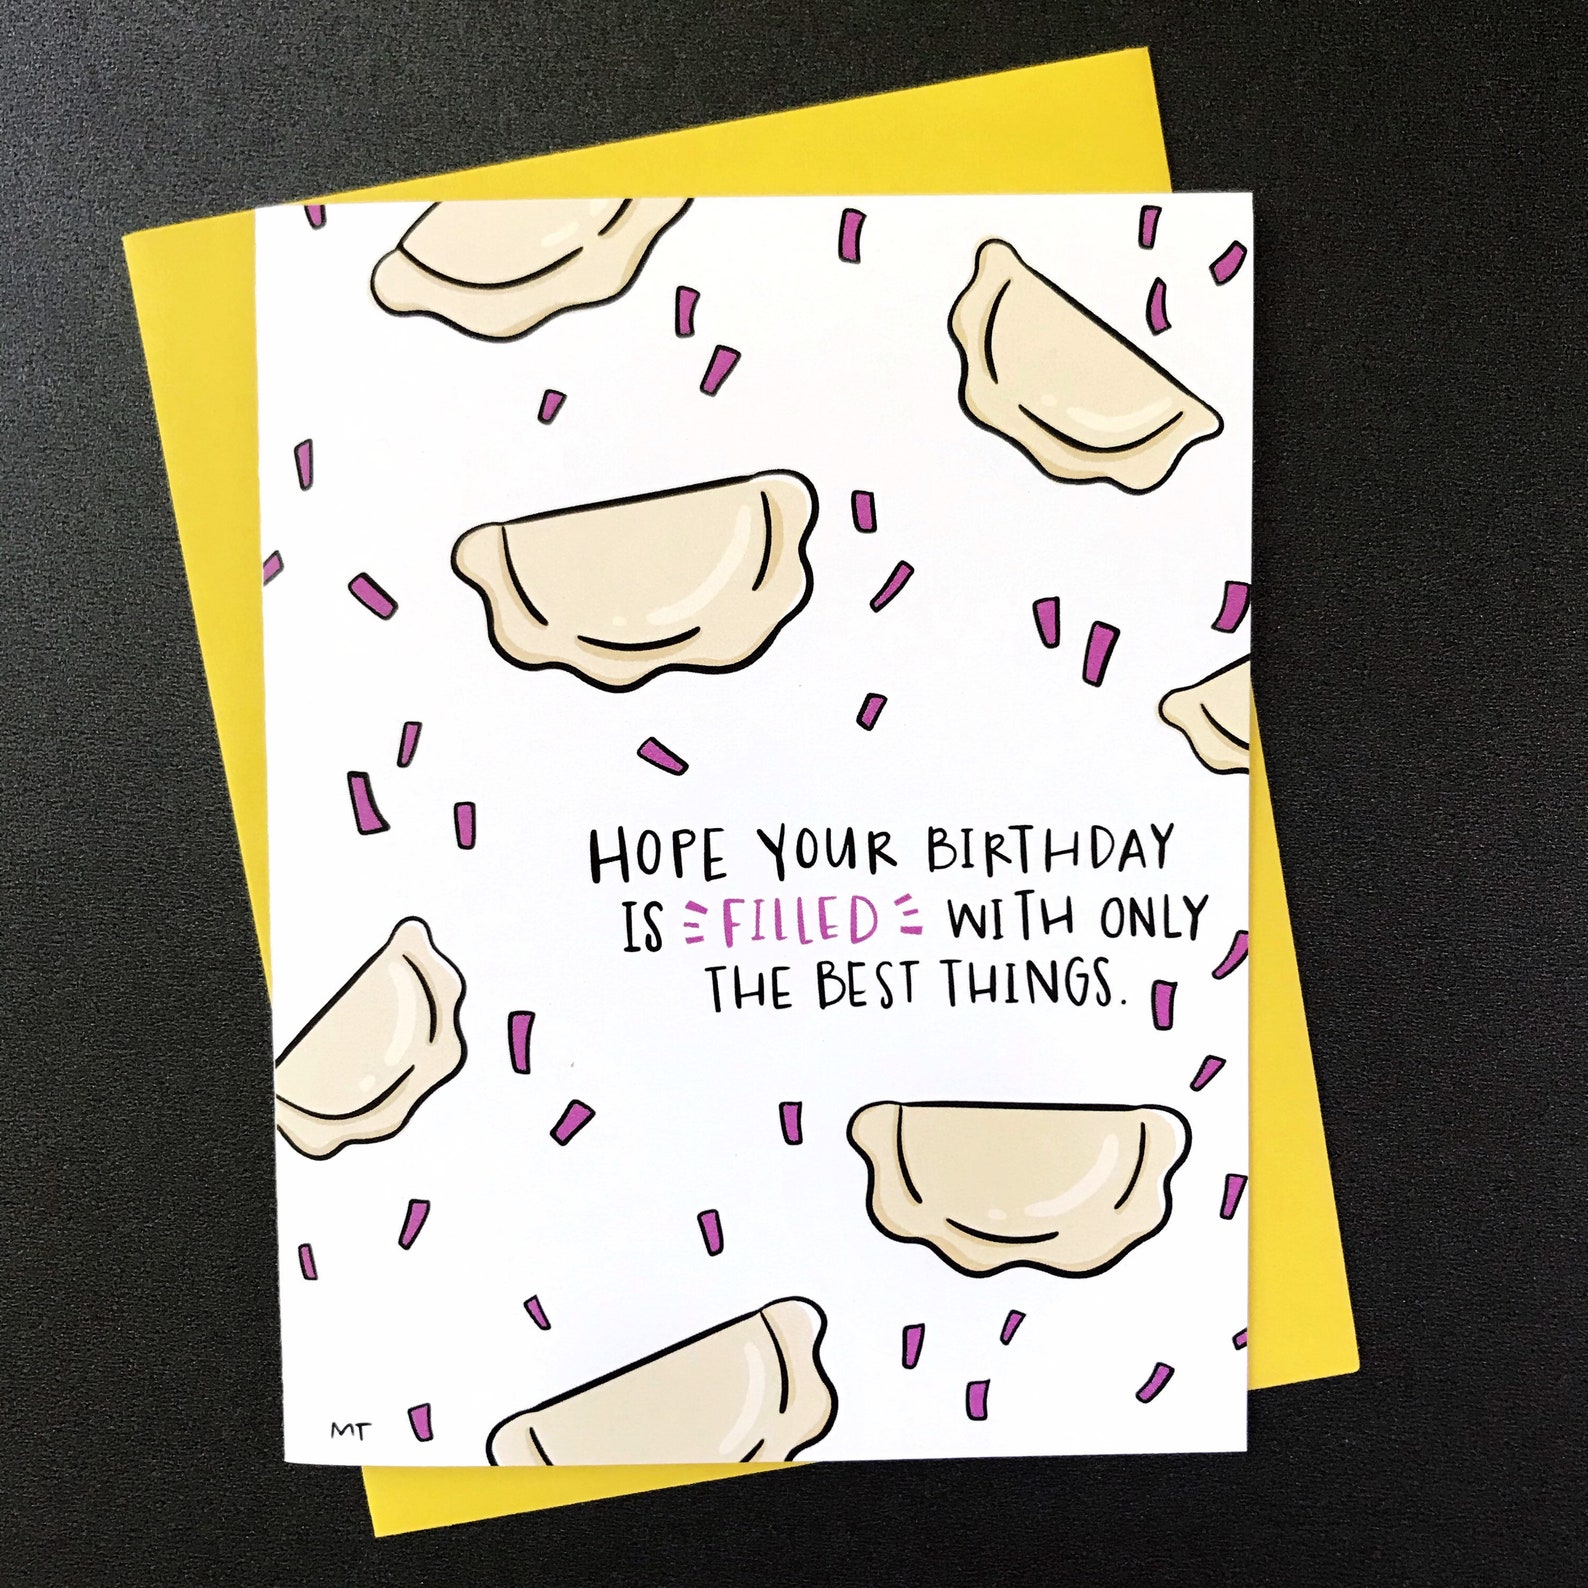 HOPE YOUR BIRTHDAY
IS FILLED WITH ONLY
THE BEST THINGS.
MT